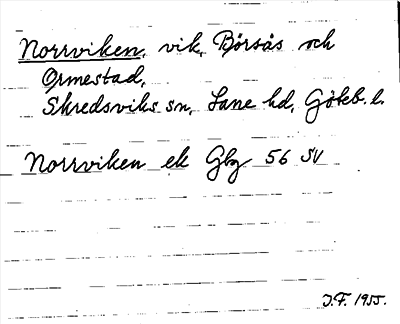 Norrviken, vik, Börsås och
Ormestad,
Skredsviks sn, Lane hd, Göteb. l.
Norrviken ek Gbg 56 SV
J.F. 1955.